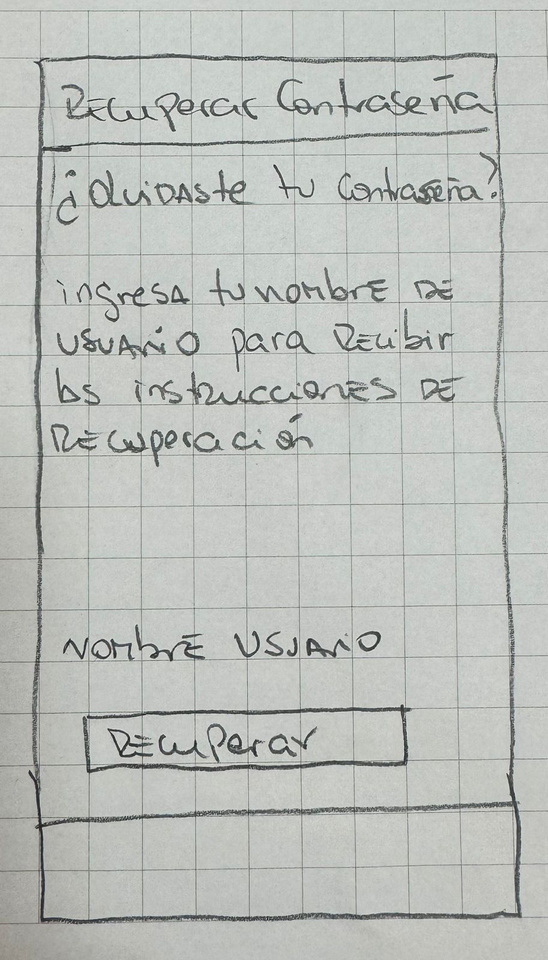 Recuperar Contraseña
¿Olvidaste tu contraseña?
ingresa tu nombre DE
USUARIO para Recibir
las instrucciones DE
Recuperación
NOMBRE USUARIO
Recuperar